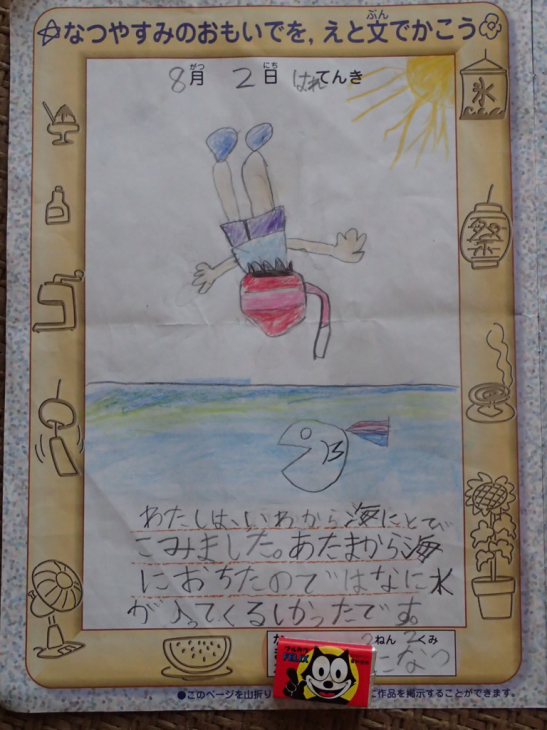 なつやすみのおもいでを,えと文でかこう
ぶん
がつ にち
8月 2日 はれてんき
氷
祭
わたしは、いわから海にとび
こみました。あたまから海
におちたのではなに水
が入ってくるしかったです。
な
2ねん 2くみ
になつ
フィリックス
●このページを山折り
に作品を掲示することができます。